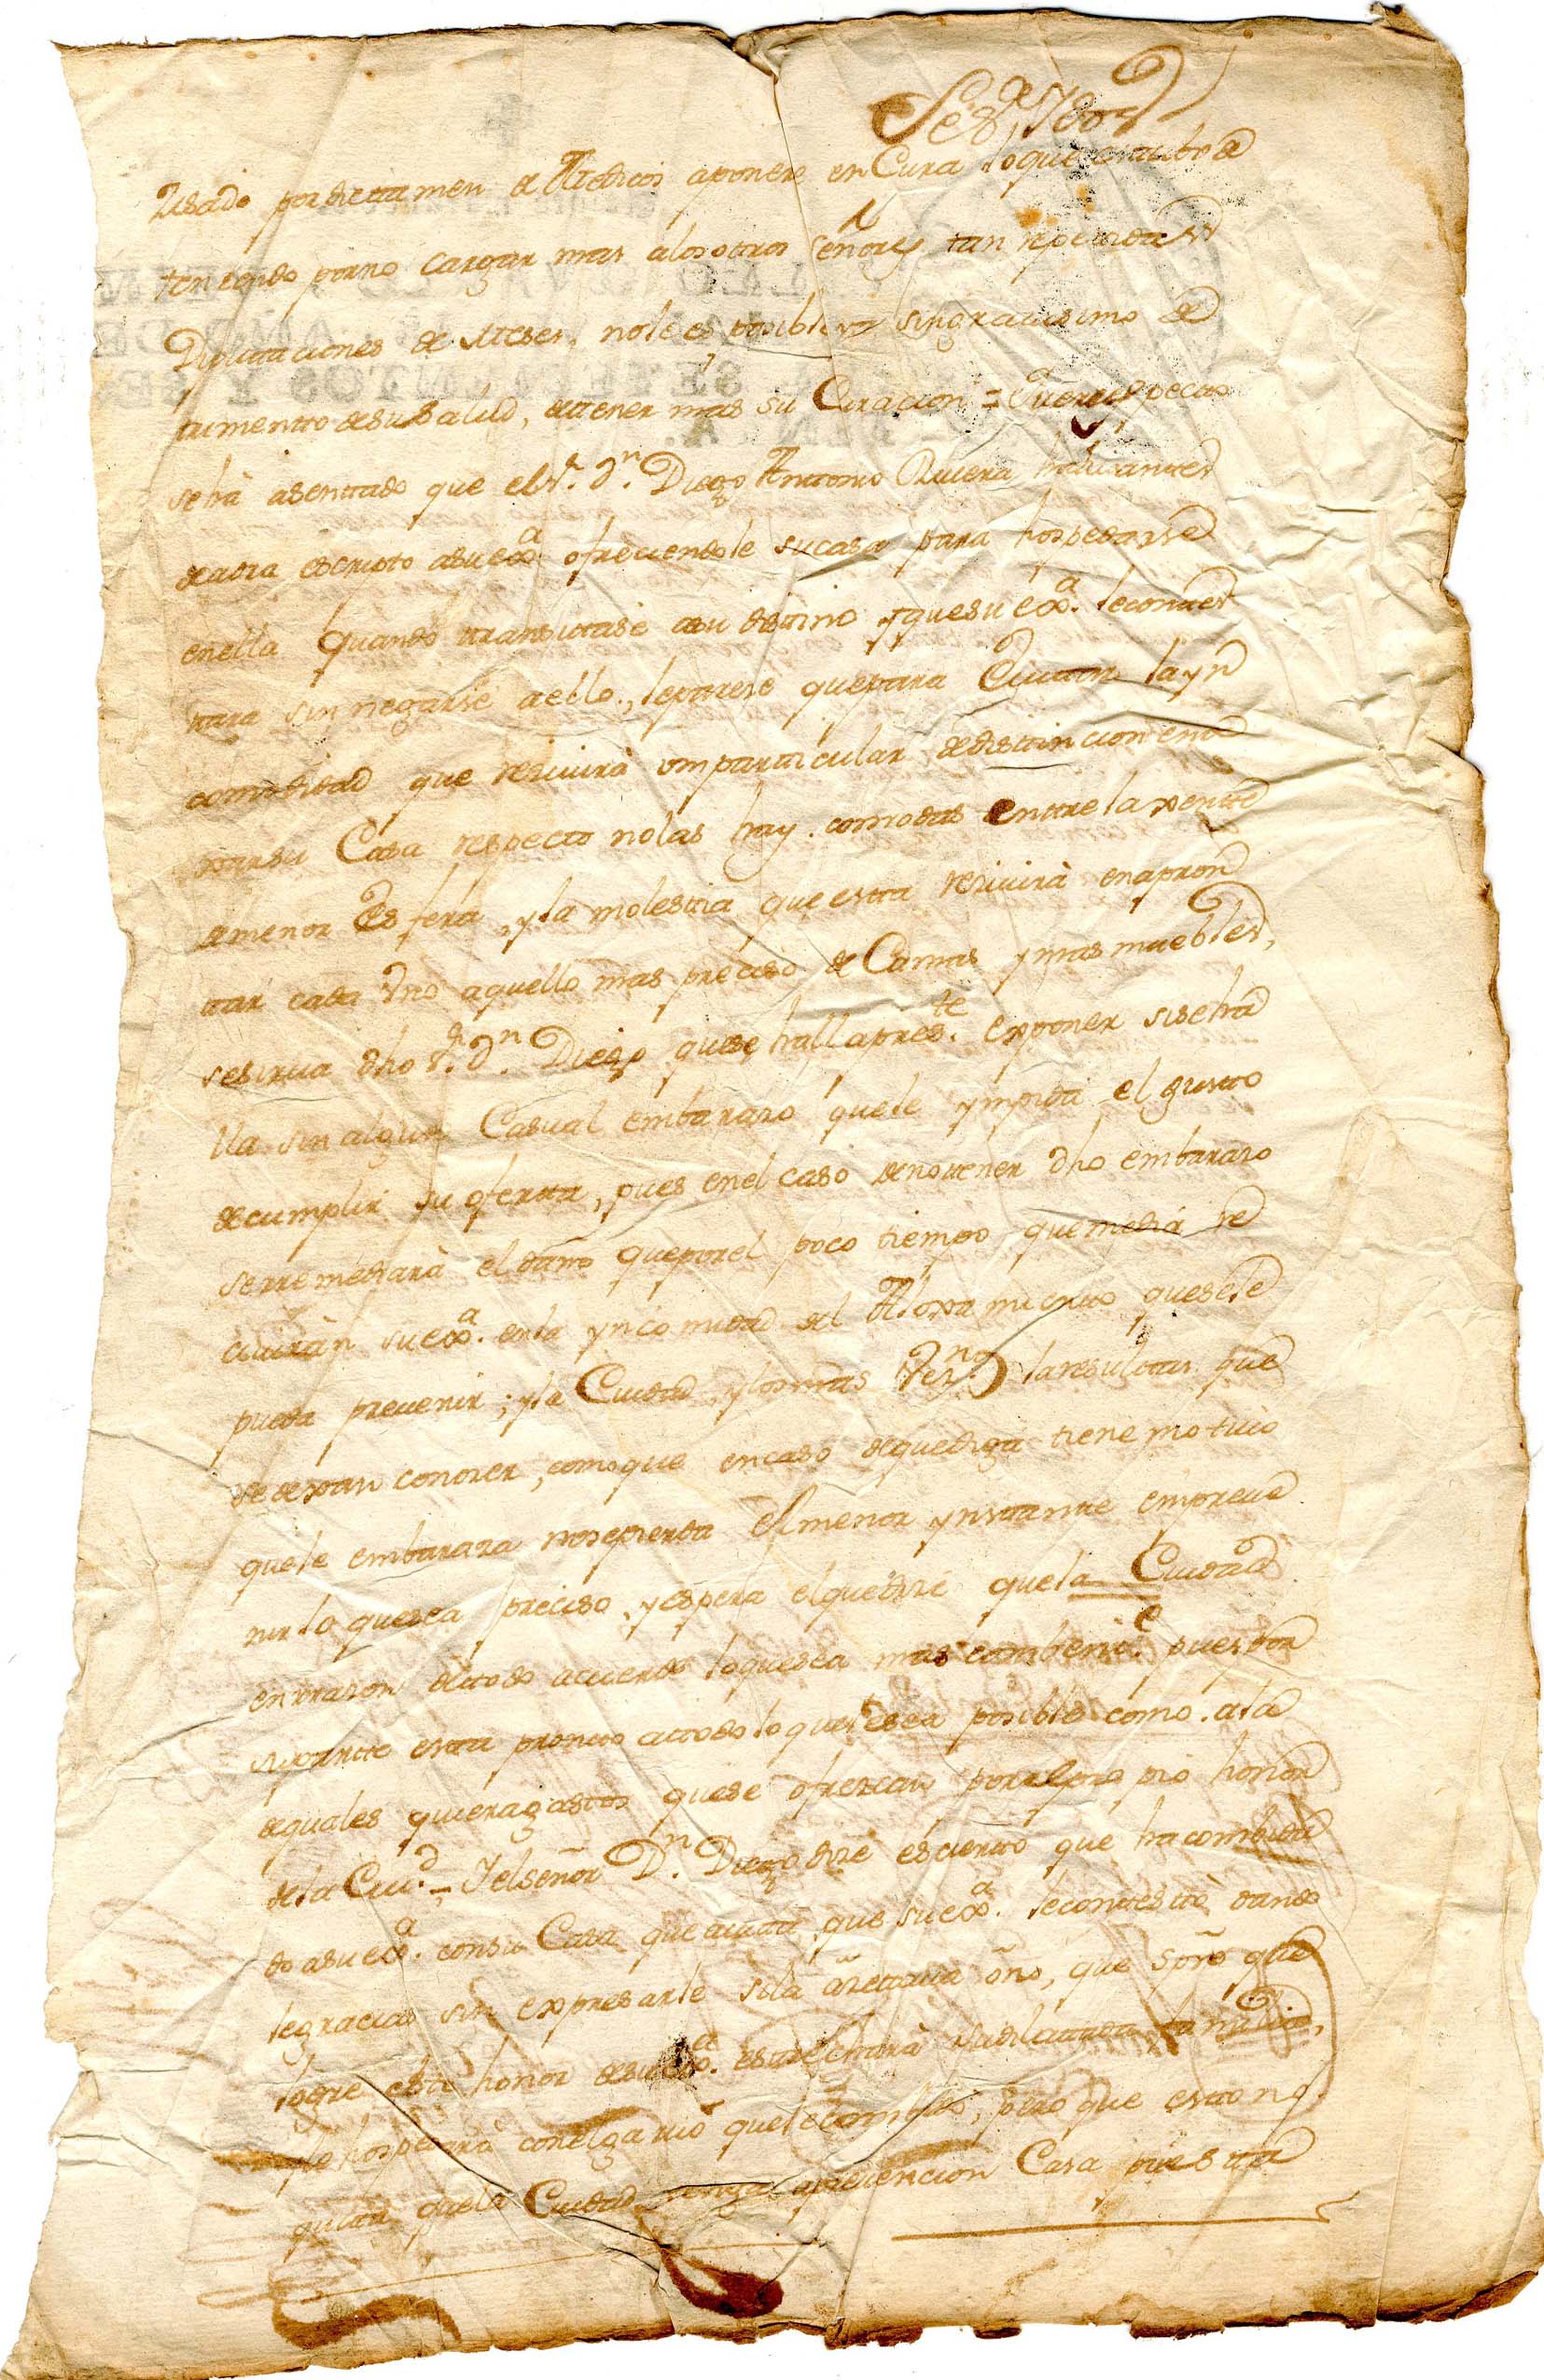 zisado por dictamen de Medicos a ponere en Cura lo que
teniendo por no cargar mas a los otros señores tan repetidas
Diputaciones de Meses, no le es posible sin gravissimo de
trimentto de su salud, dettener mas su Curacion = Que respecto
se hà asenttado que el Sr. Dn. Diego Anttonio Rivera
escripto a su exa. ofreciendole su casa para hospedarse
en ella quando transitase a su destino y que su exa. le conttes
ttara sin negarse a ello, le parese que para Evittar la yn
comodidad que resivirà um partticular de disttincion en
su Casa respecto no las hay comodas enttre la xentte
de menor Esfera, y la molesttia que estta resivirà en apron
ttar cada Vno aquello mas preciso de Camas y mas muebles,
se sirva dho Sr. Dn. Diego que se halla preste. exponer si se ha
lla sin algun Casual embarazo que le ympida el gustto
de cumplir su ofertta, pues en el caso de no ttener dho embarazo
se rremediarà el daño que por el poco tiempo que media re
civiràn su exa. en la yncomodidad del Aloxamientto que se le
pueda prevenir; y la Ciudad, y los mas Vezns. las resulttas que
se dexan conozer, como que en caso de que diga tiene motivo
que le embaraza no se pierda el menor ynsttantte em preve
nir lo que sea preciso, y espera el que dize que la Ciudad
en rrazon de ttodo acuerde lo que sea mas combenie. pues por
su partte estta promtto a ttodo lo que le sea posible como a la
de quales quiera gasttos que se ofrezcan por el propio honor
de la Ciud. = Y el señor Dn. Diego dize es ciertto que ha combida
do a su exa. con su Casa que avitta que su exa. le conttesttò dando
le gracias sin expresarle si la azettava o no, que siempre que
logre este honor de su exa. esttrecharà su dilattada familia,
y le hospedarà con el gasttio que le combido, pero que estto no
quitta que la Ciudad tenga a prevencion Casa puestta